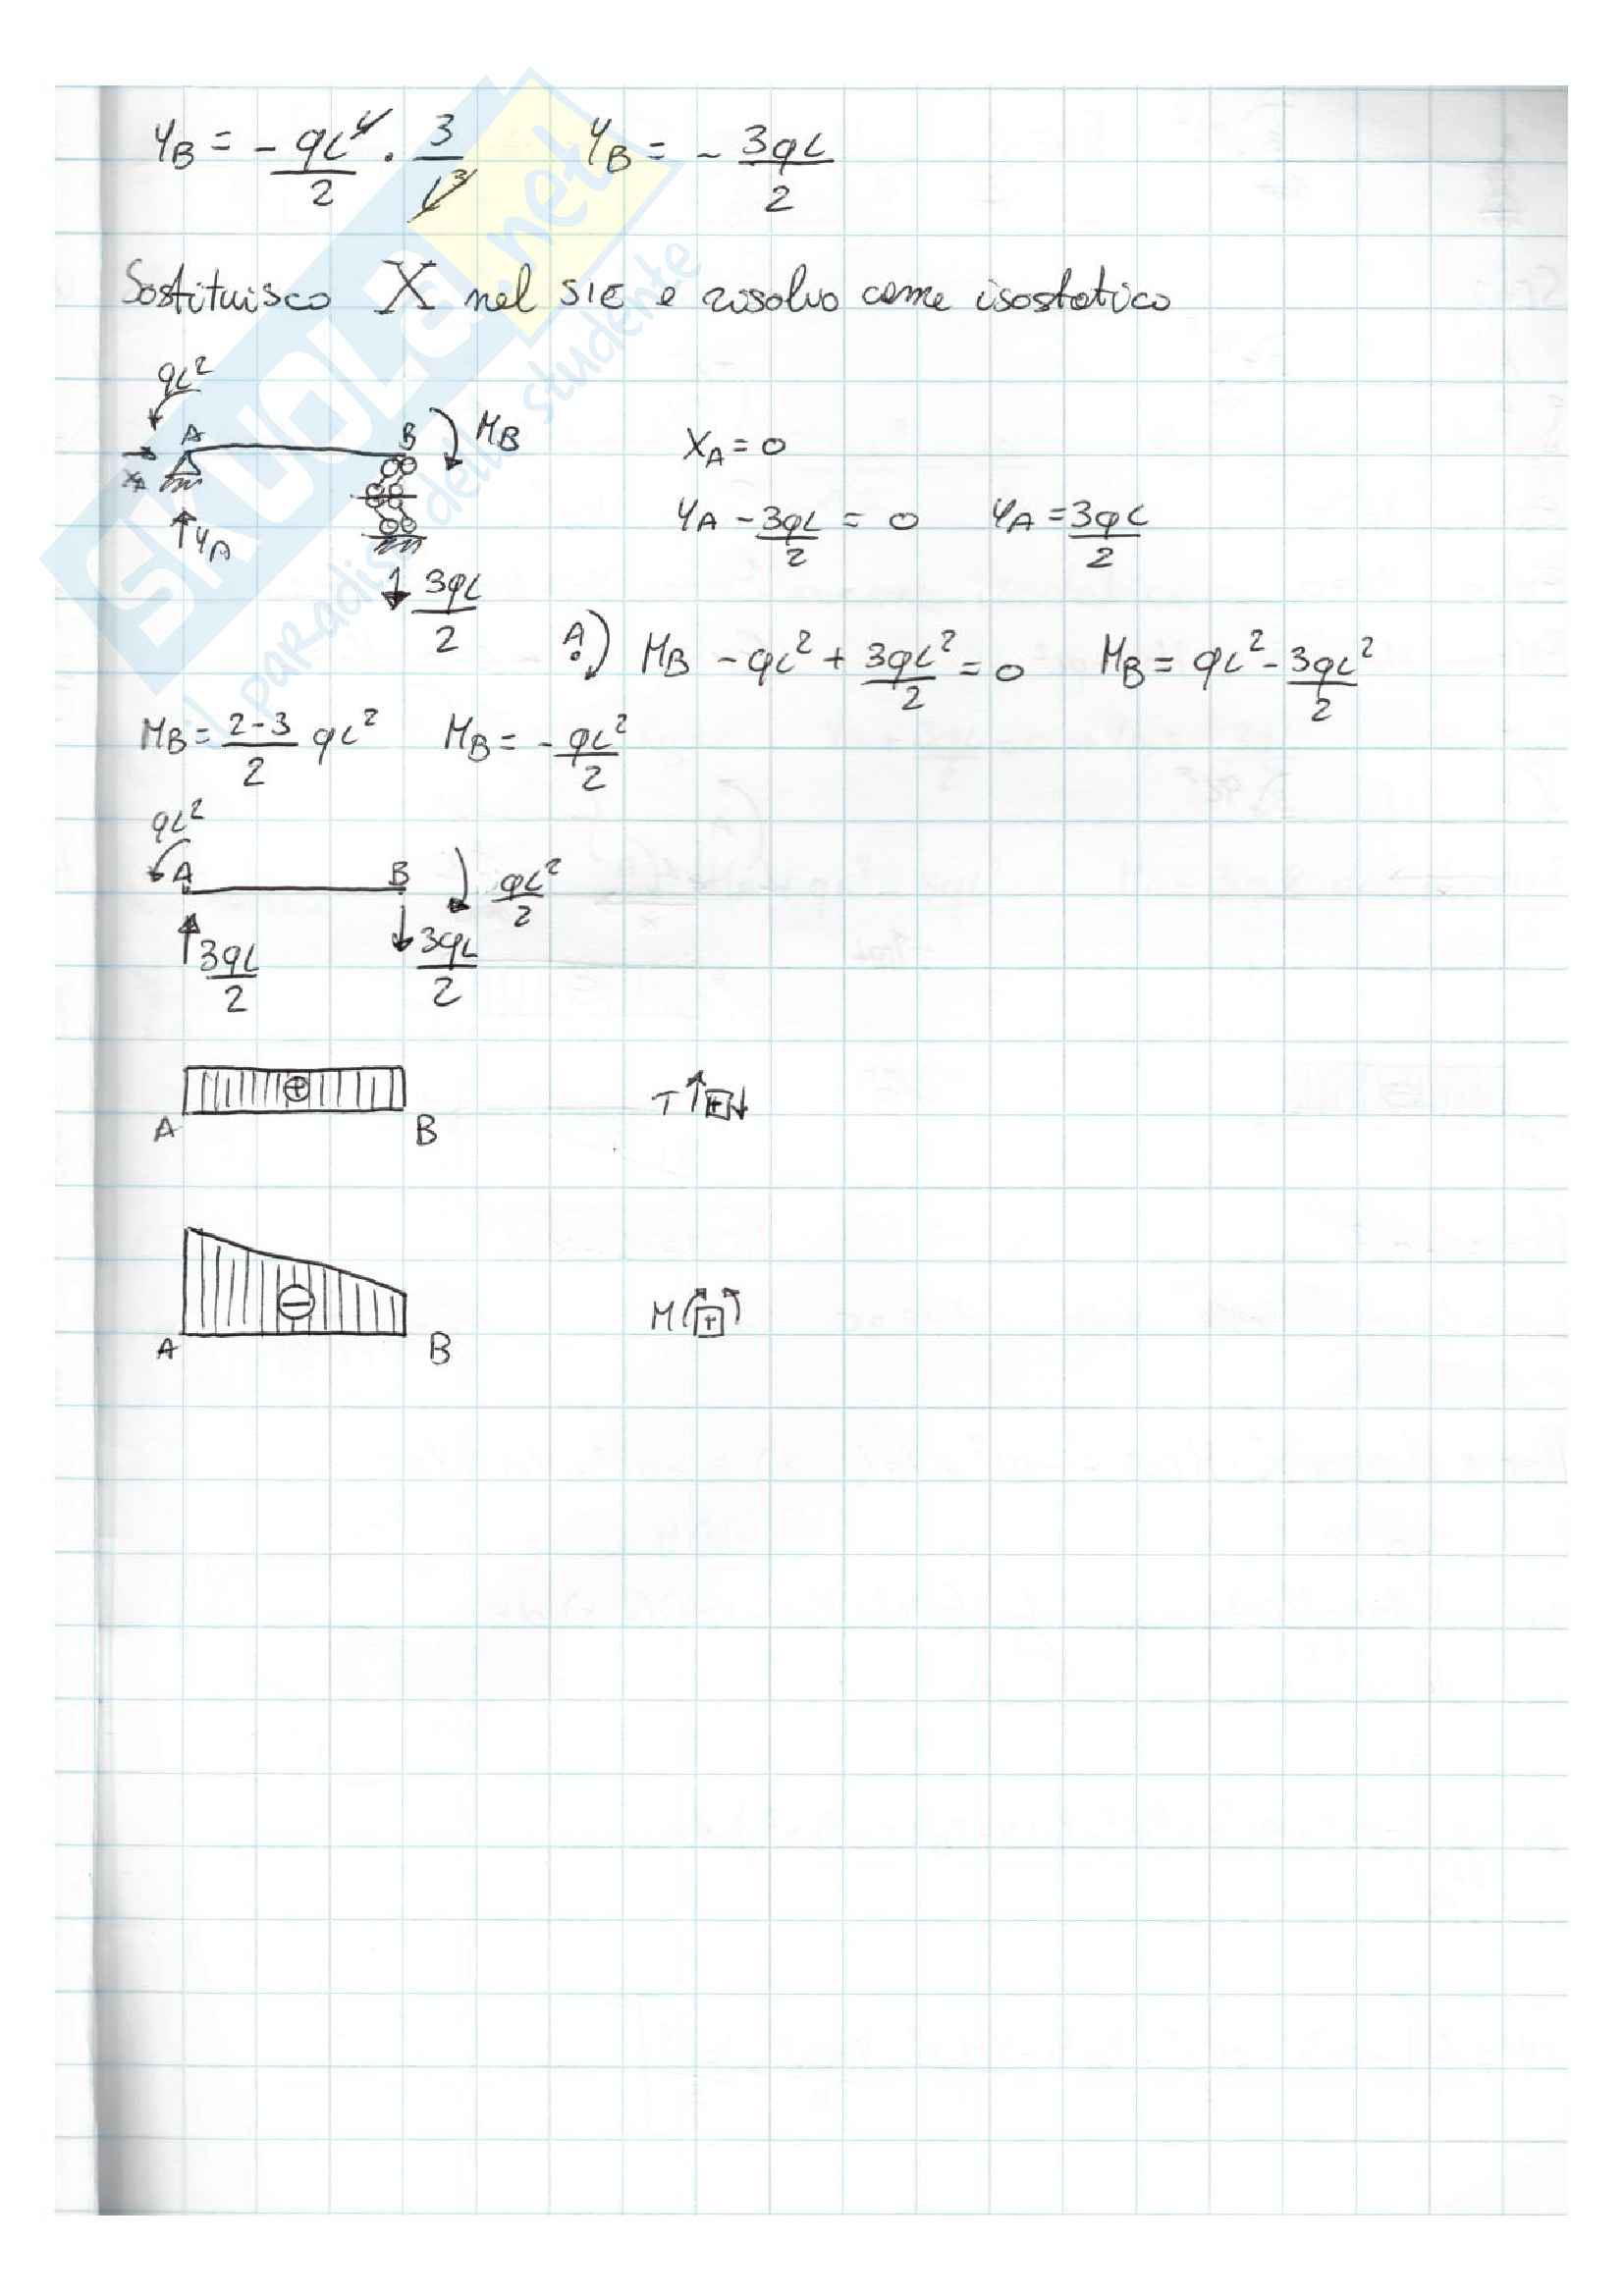 Y_B = - qL^4/2 · 3/L^3   Y_B = - 3qL/2
Sostituisco X nel SIE e risolvo come isostatico
qL²
A B M_B   X_A = 0
X_A
Y_A   Y_A - 3qL/2 = 0   Y_A = 3qL/2
3qL/2
A   M_B - qL² + 3qL²/2 = 0   M_B = qL² - 3qL²/2
M_B = 2-3/2 qL²   M_B = - qL²/2
qL²
A B qL²/2
3qL/2   3qL/2
+
A B   T +
-
A B   M +
SKUOLA.net
il paradiso dello studente